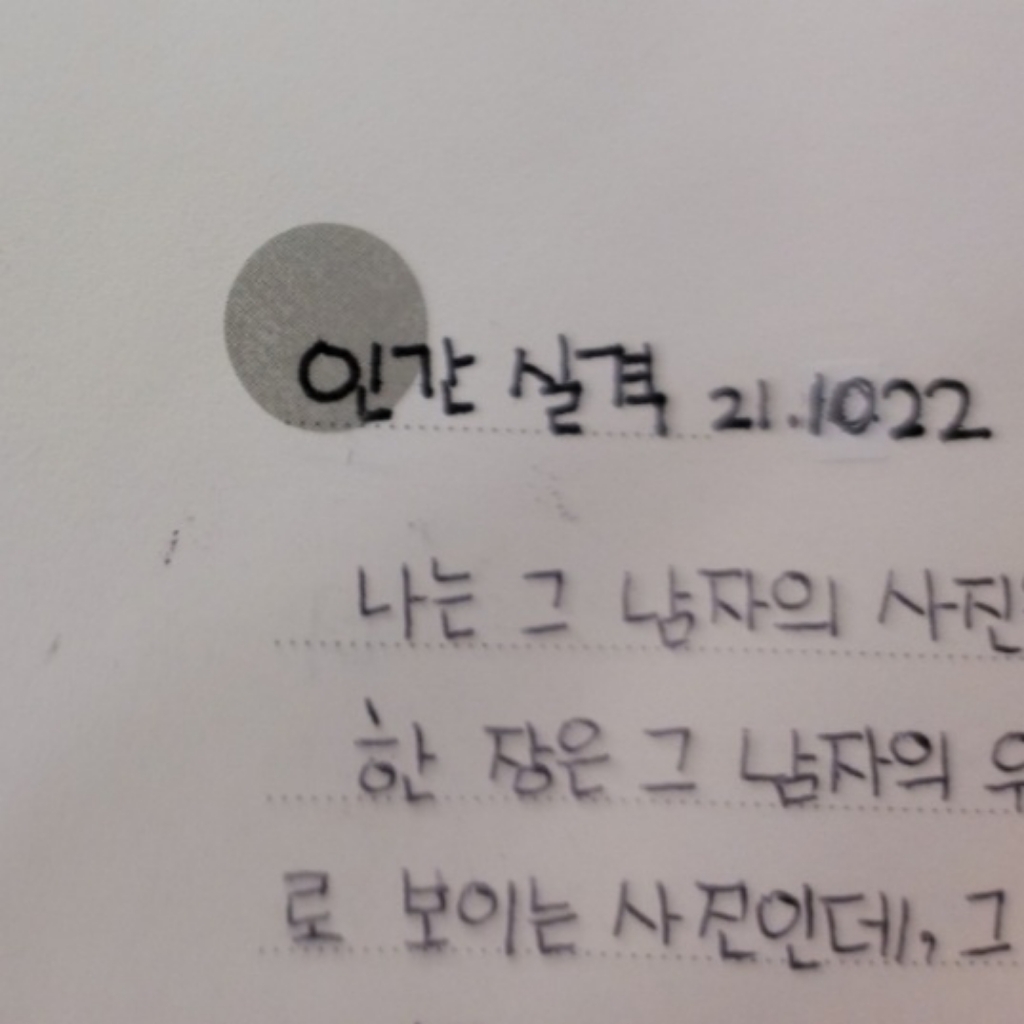 인간 실격 21.1022
나는 그 남자의 사진
한 장은 그 남자의
로 보이는 사진인데, 그